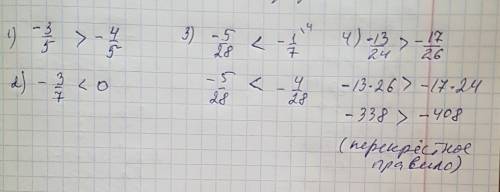 1) -3/5 > -4/5
2) -3/7 < 0
3) -5/28 < -1/7 \4
-5/28 < -4/28
4) -13/24 > -17/26
-13·26 > -17·24
-338 > -408
(перекрёстное
правило)